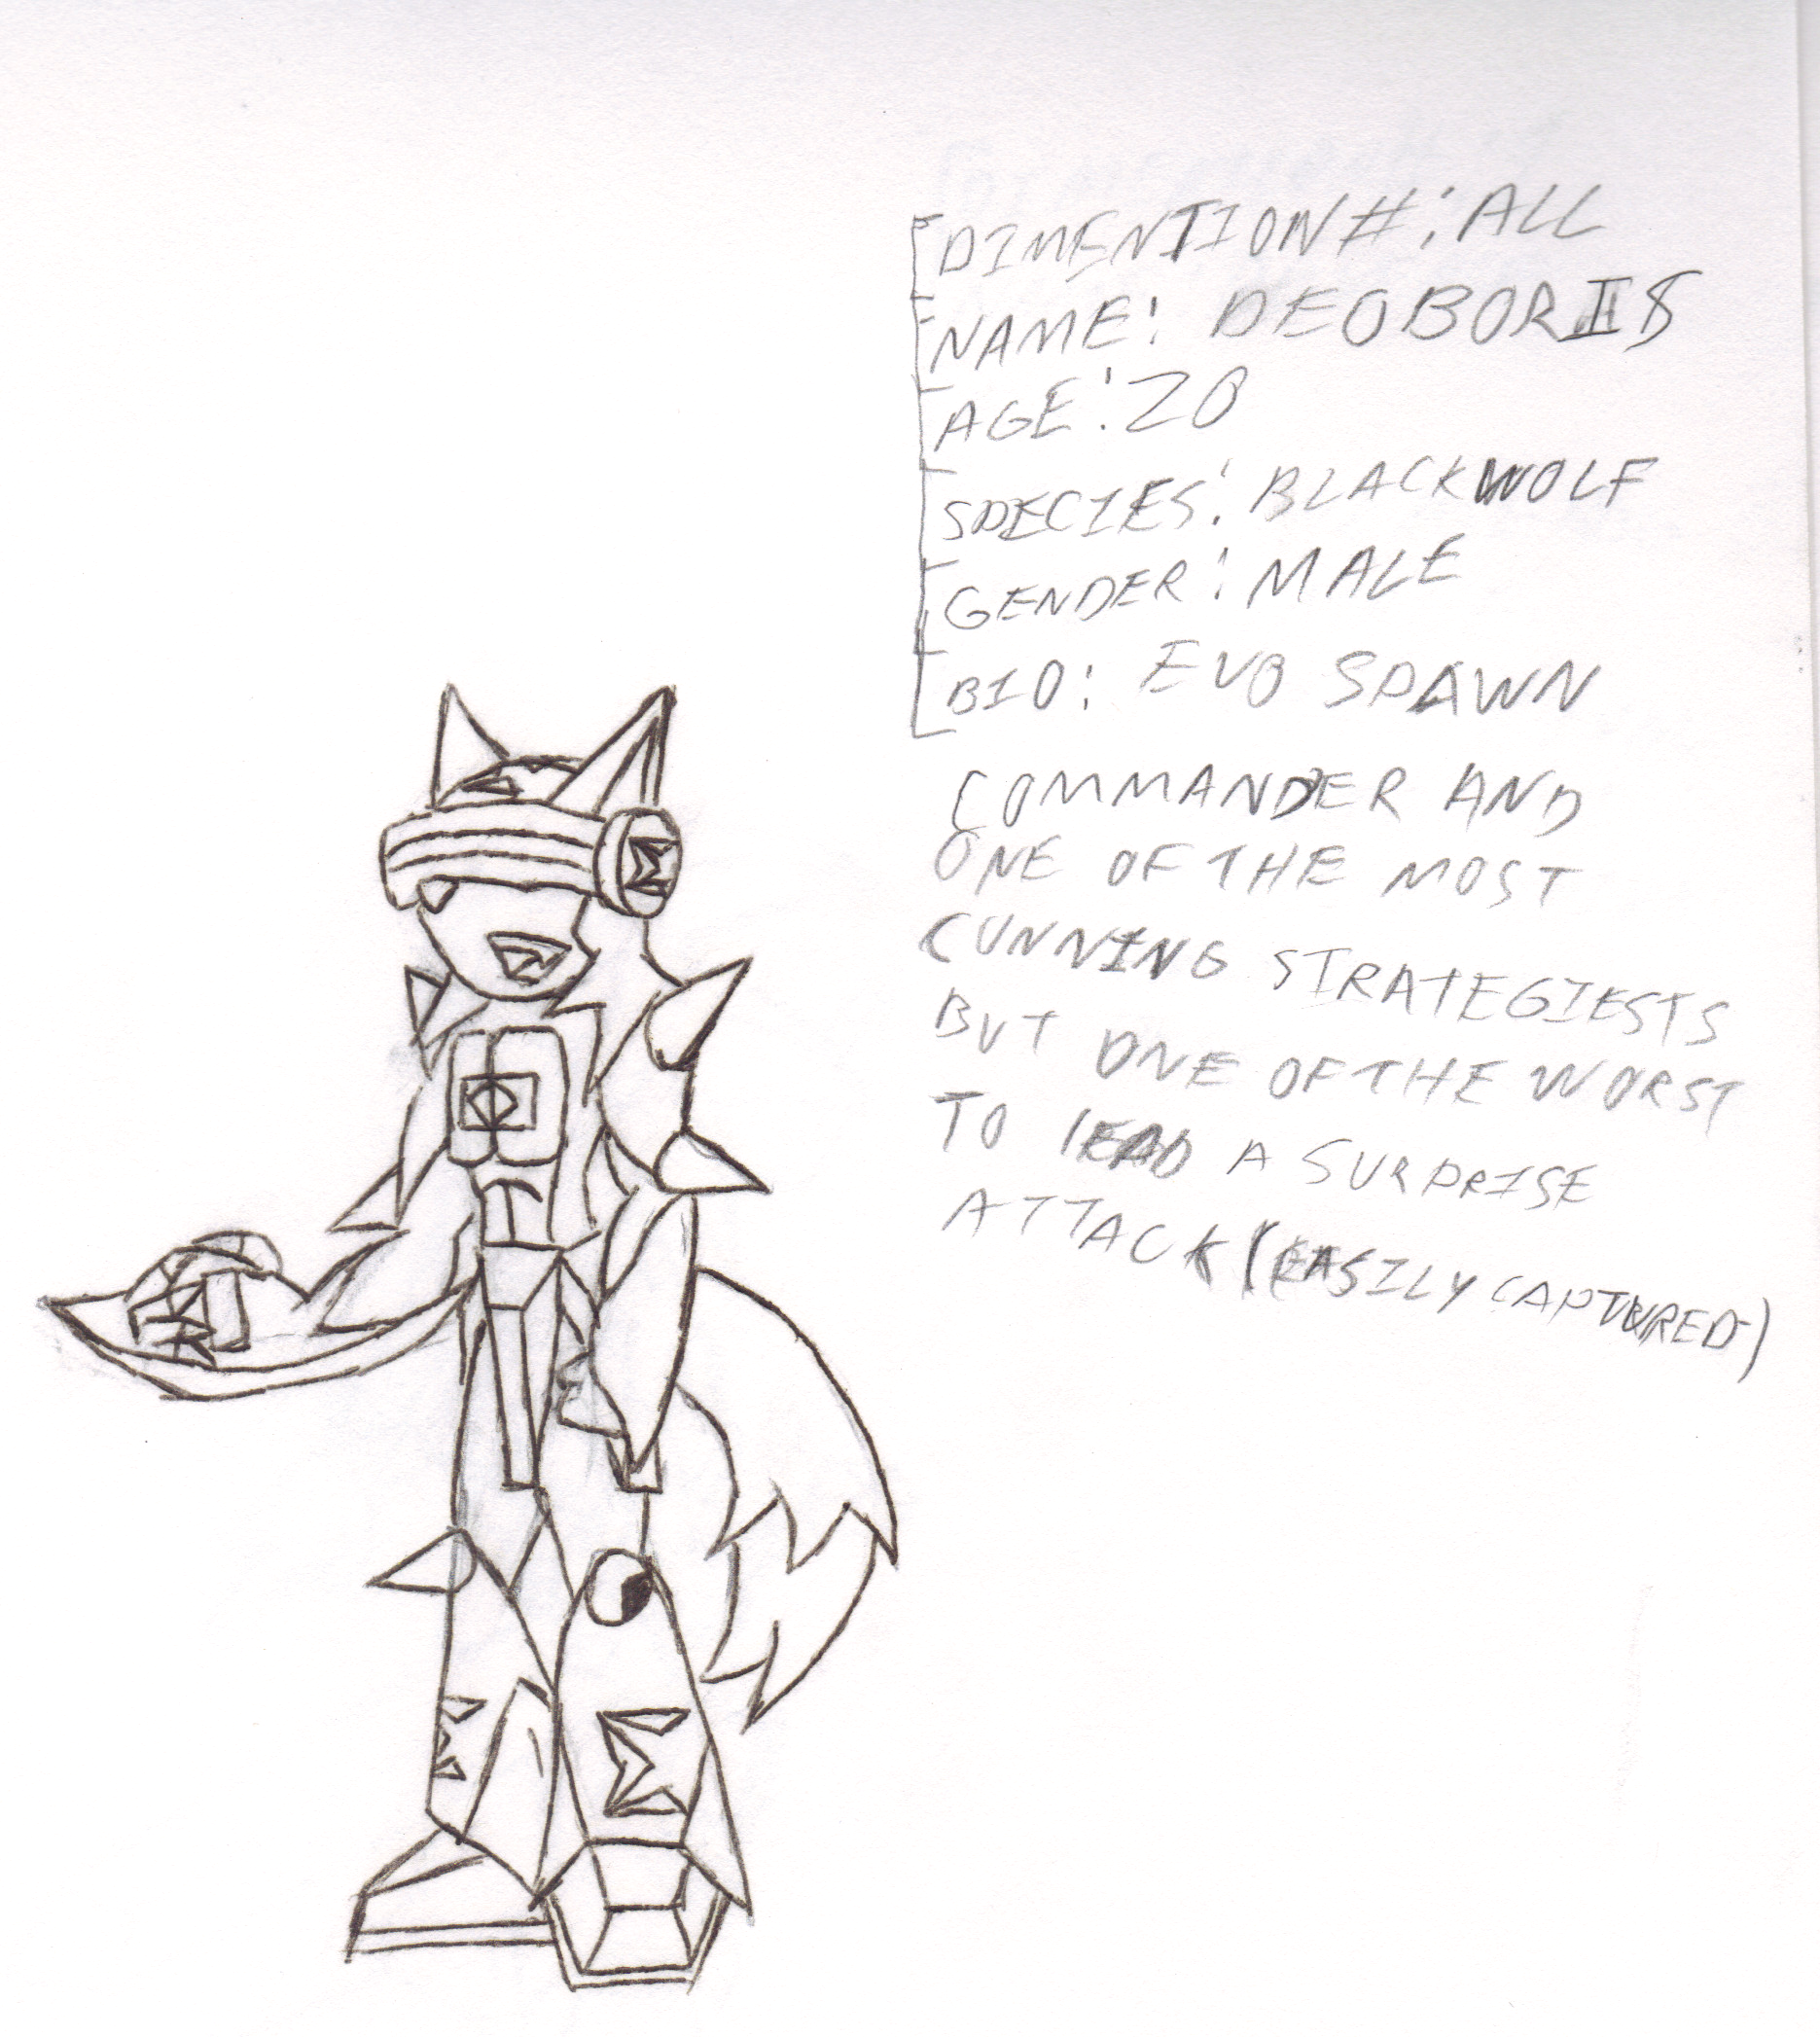 DIMENTION#: ALL
NAME: DEOBORIS
AGE: 20
SPECIES: BLACKWOLF
GENDER: MALE
BIO: EVO SPAWN
COMMANDER AND
ONE OF THE MOST
CUNNING STRATEGIESTS
BUT ONE OF THE WORST
TO lEAD A SURPRISE
ATTACK (EASILY CAPTURED)